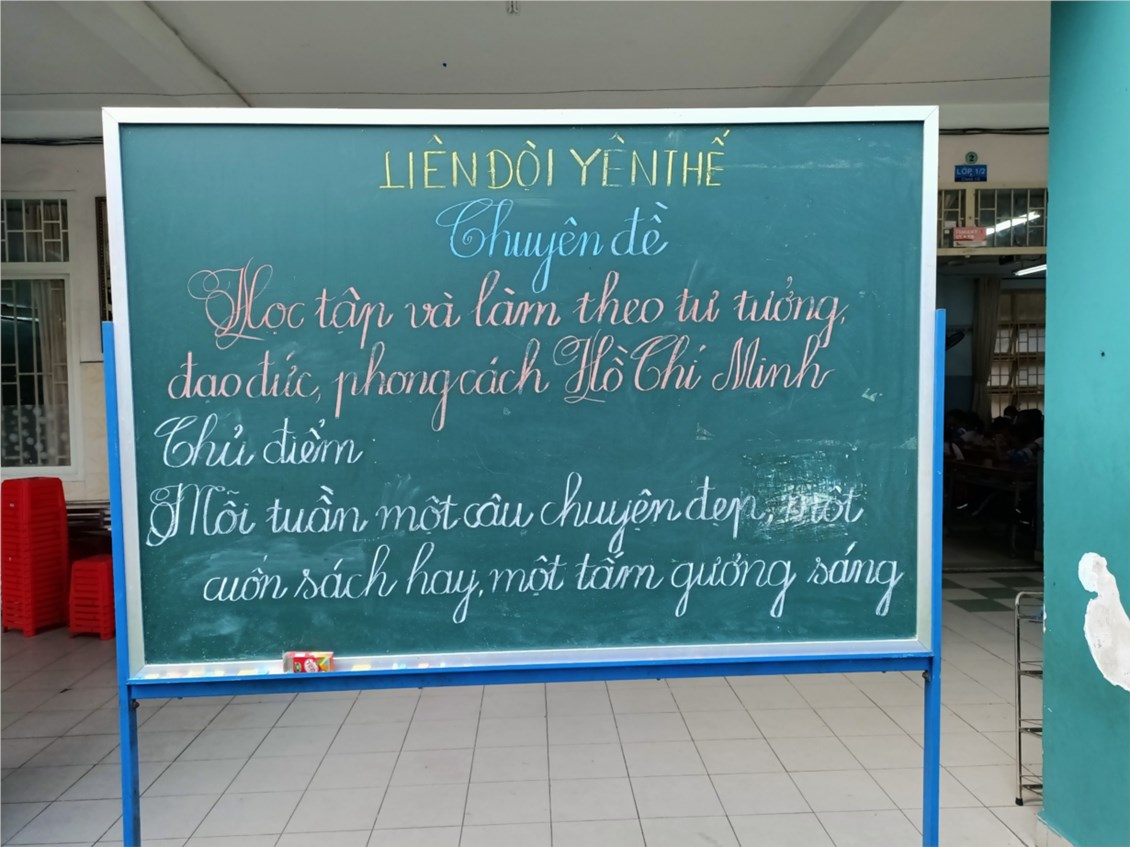 LIÊN ĐỘI YÊN THẾ
Chuyên đề
Học tập và làm theo tư tưởng,
đạo đức, phong cách Hồ Chí Minh
Chủ điểm
Mỗi tuần một câu chuyện đẹp, một
cuốn sách hay, một tấm gương sáng
2
LỚP 1/2